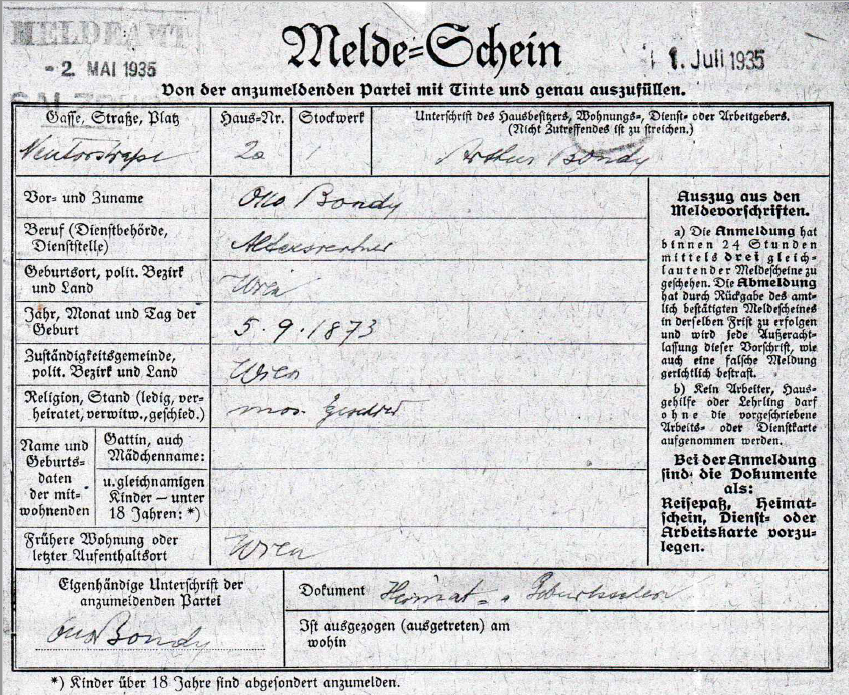 MELDEAMT
- 2. MAI 1935
Melde-Schein
1. Juli 1935
Von der anzumeldenden Partei mit Tinte und genau auszufüllen.
Gasse, Straße, Platz
Haus-Nr.
Stockwerk
Unterschrift des Hausbesitzers, Wohnungs-, Dienst- oder Arbeitgebers.
(Nicht Zutreffendes ist zu streichen.)
Neutorstraße
2a
1
Arthur Bondy
Vor- und Zuname
Otto Bondy
Beruf (Dienstbehörde,
Dienststelle)
Altersrentner
Geburtsort, polit. Bezirk
und Land
Wien
Jahr, Monat und Tag der
Geburt
5. 9. 1873
Zuständigkeitsgemeinde,
polit. Bezirk und Land
Wien
Religion, Stand (ledig, ver-
heiratet, verwitw., geschied.)
mos.
Name und
Geburts-
daten
der mit-
wohnenden
Gattin, auch
Mädchenname:
u. gleichnamigen
Kinder — unter
18 Jahren: *)
Frühere Wohnung oder
letzter Aufenthaltsort
Wien
Auszug aus den
Meldevorschriften.
a) Die Anmeldung hat
binnen 24 Stunden
mittels drei gleich-
lautender Meldescheine zu
geschehen. Die Abmeldung
hat durch Rückgabe des amt-
lich bestätigten Meldescheines
in derselben Frist zu erfolgen
und wird jede Außeracht-
lassung dieser Vorschrift, wie
auch eine falsche Meldung
gerichtlich bestraft.
b) Kein Arbeiter, Haus-
gehilfe oder Lehrling darf
ohne die vorgeschriebene
Arbeits- oder Dienstkarte
aufgenommen werden.
Bei der Anmeldung
sind die Dokumente
als:
Reisepaß, Heimat-
schein, Dienst- oder
Arbeitskarte vorzu-
legen.
Eigenhändige Unterschrift der
anzumeldenden Partei
Otto Bondy
Dokument
Heimat- u Geburtsschein
Ist ausgezogen (ausgetreten) am
wohin
*) Kinder über 18 Jahre sind abgesondert anzumelden.